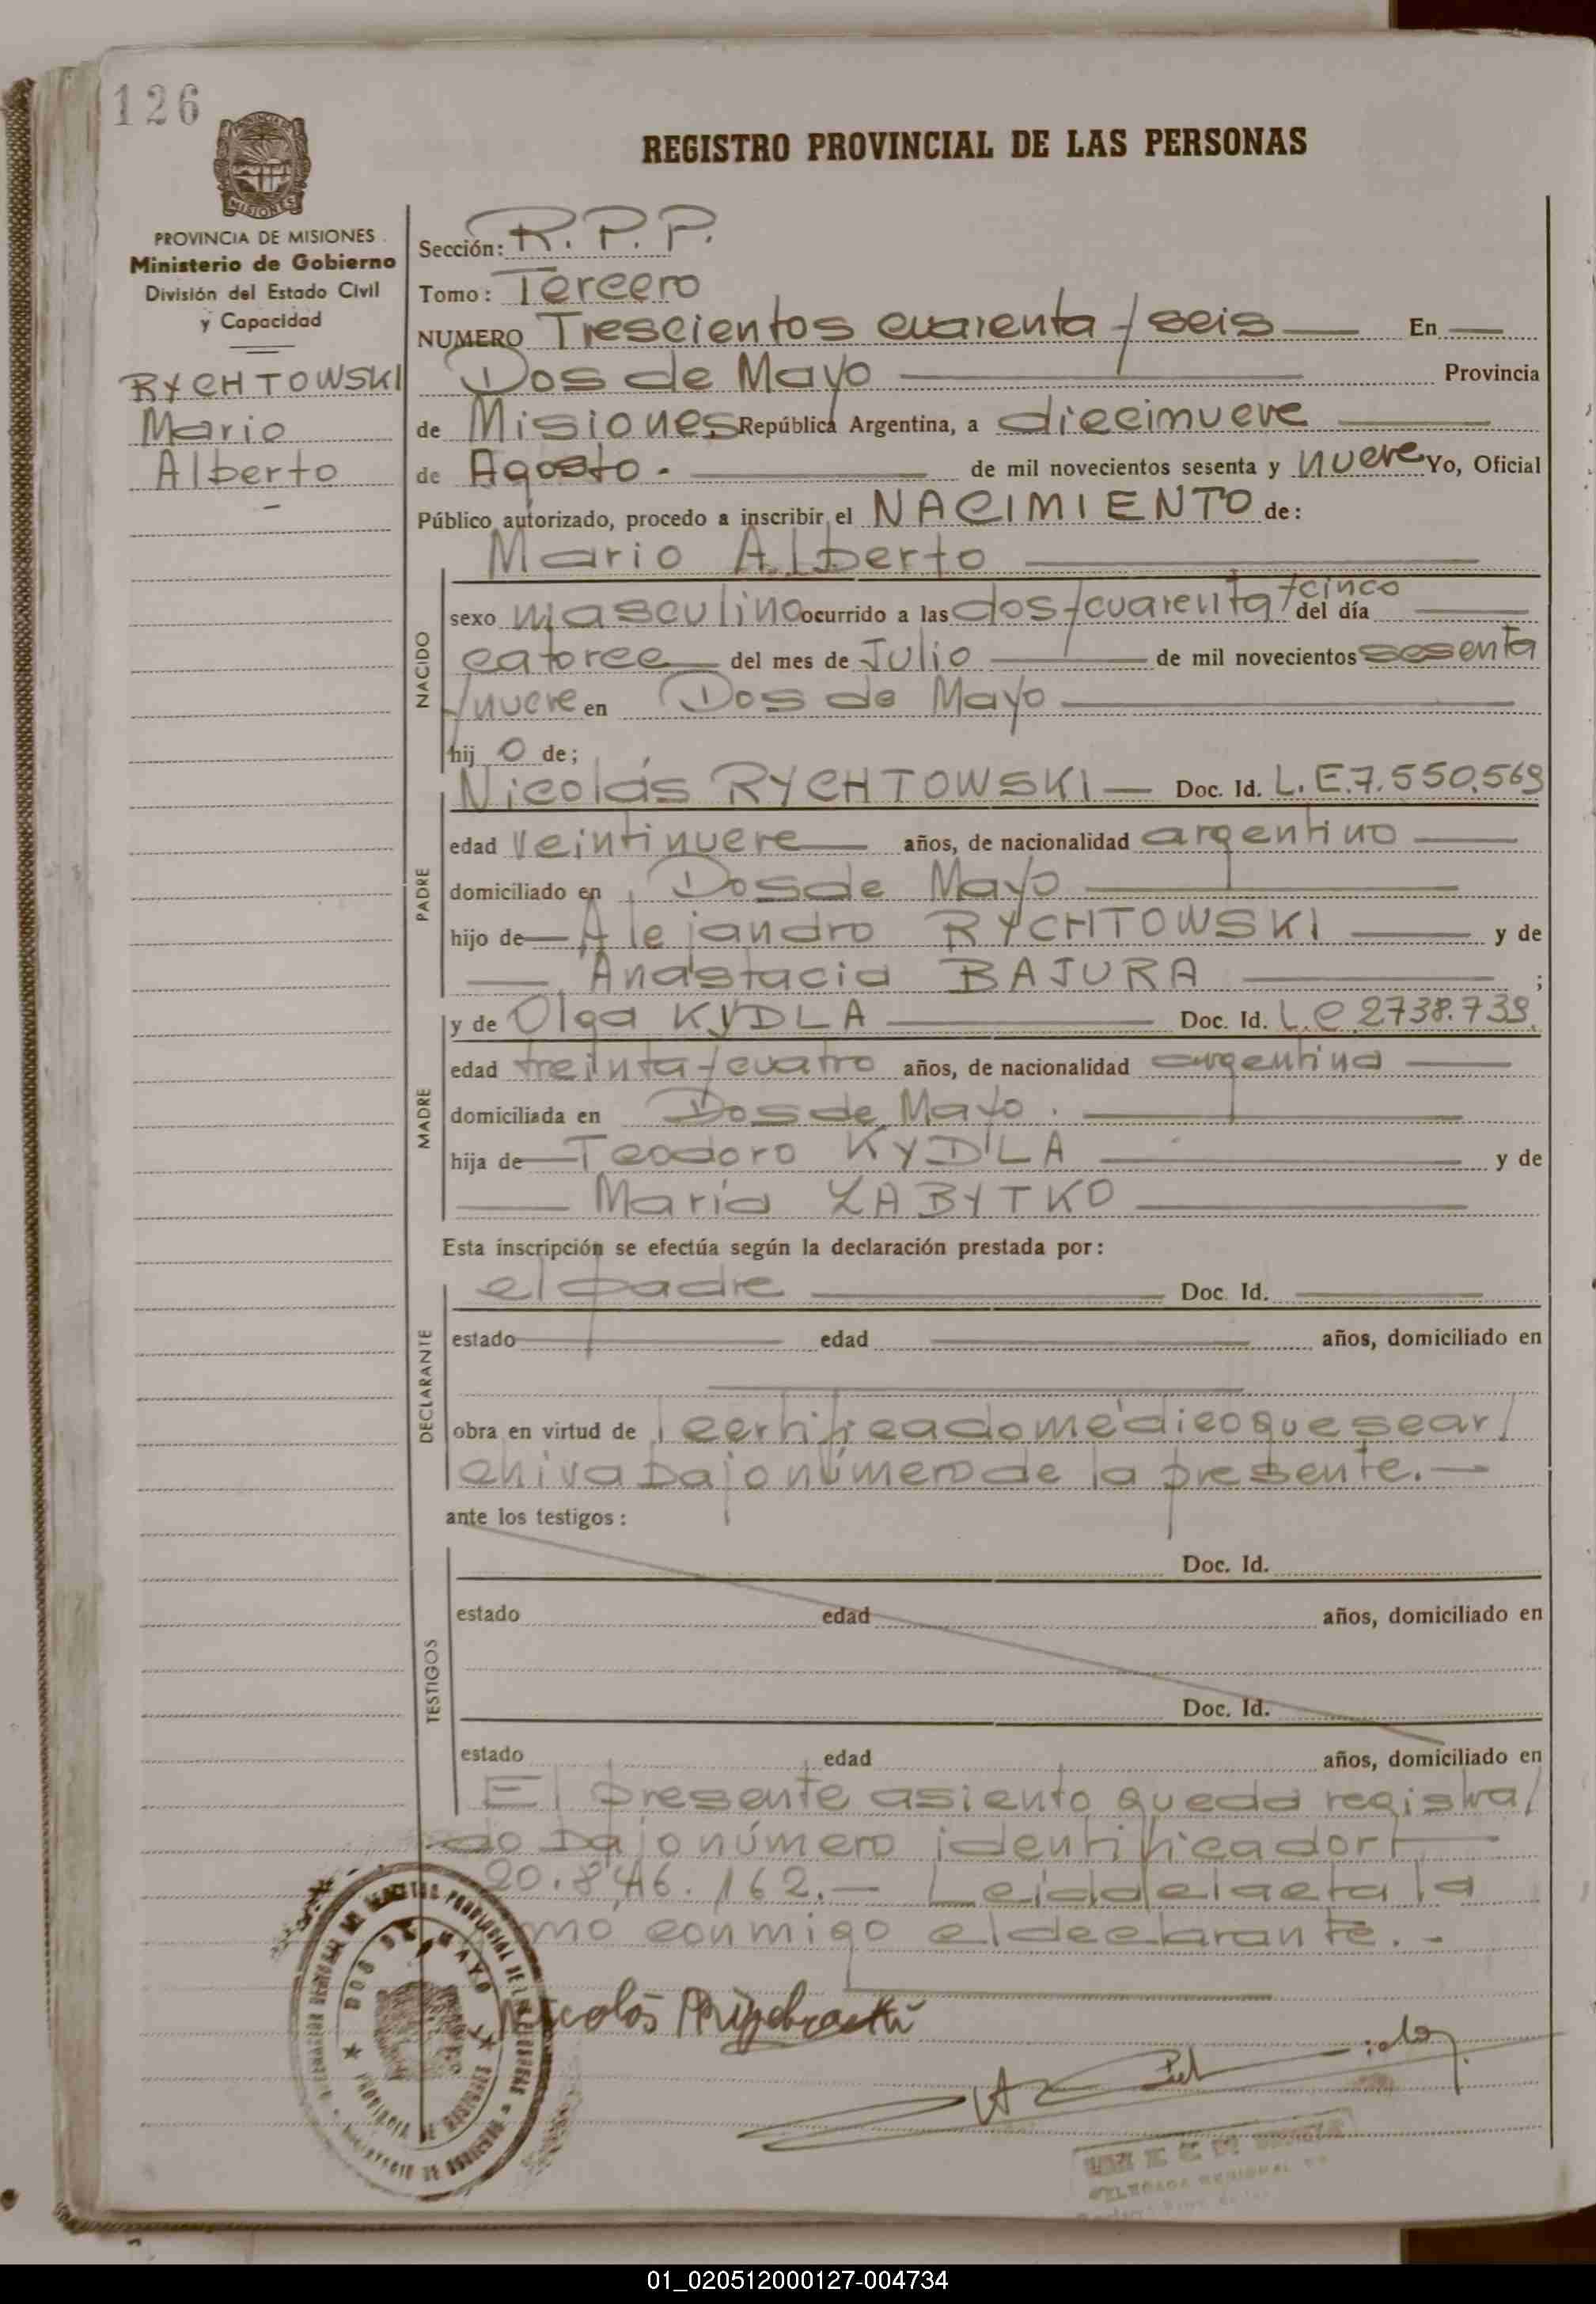 126
REGISTRO PROVINCIAL DE LAS PERSONAS
MISIONES
PROVINCIA DE MISIONES
Ministerio de Gobierno
División del Estado Civil
y Capacidad
RYCHTOWSKI
Mario
Alberto
Sección: R. P. P.
Tomo: Tercero
NUMERO Trescientos cuarenta y seis En
Dos de Mayo Provincia
de Misiones República Argentina, a diecinueve
de Agosto.- de mil novecientos sesenta y nueve Yo, Oficial
Público autorizado, procedo a inscribir el NACIMIENTO de:
Mario Alberto
NACIDO
sexo masculino ocurrido a las dos y cuarenta y cinco del día
catorce del mes de Julio de mil novecientos sesenta
y nueve en Dos de Mayo
hij o de;
PADRE
Nicolás RYCHTOWSKI Doc. Id. L. E. 7.550.569
edad veintinueve años, de nacionalidad argentino
domiciliado en Dos de Mayo
hijo de Alejandro RYCHTOWSKI y de
Anastacia BAJURA ;
MADRE
y de Olga KYDLA Doc. Id. L.C 2738.739.
edad treinta y cuatro años, de nacionalidad argentina
domiciliada en Dos de Mayo.
hija de Teodoro KYDLA y de
María ZABYTKO
Esta inscripción se efectúa según la declaración prestada por:
DECLARANTE
el padre Doc. Id.
estado edad años, domiciliado en
obra en virtud de certificado médico que se ar/
chiva bajo número de la presente.-
ante los testigos:
TESTIGOS
Doc. Id.
estado edad años, domiciliado en
Doc. Id.
estado edad años, domiciliado en
El presente asiento queda registra/
do bajo número identificador
20.846.162.- Leída el acta la
conmigo el declarante.-
DOS DE MAYO
Nicolás
01_020512000127-004734